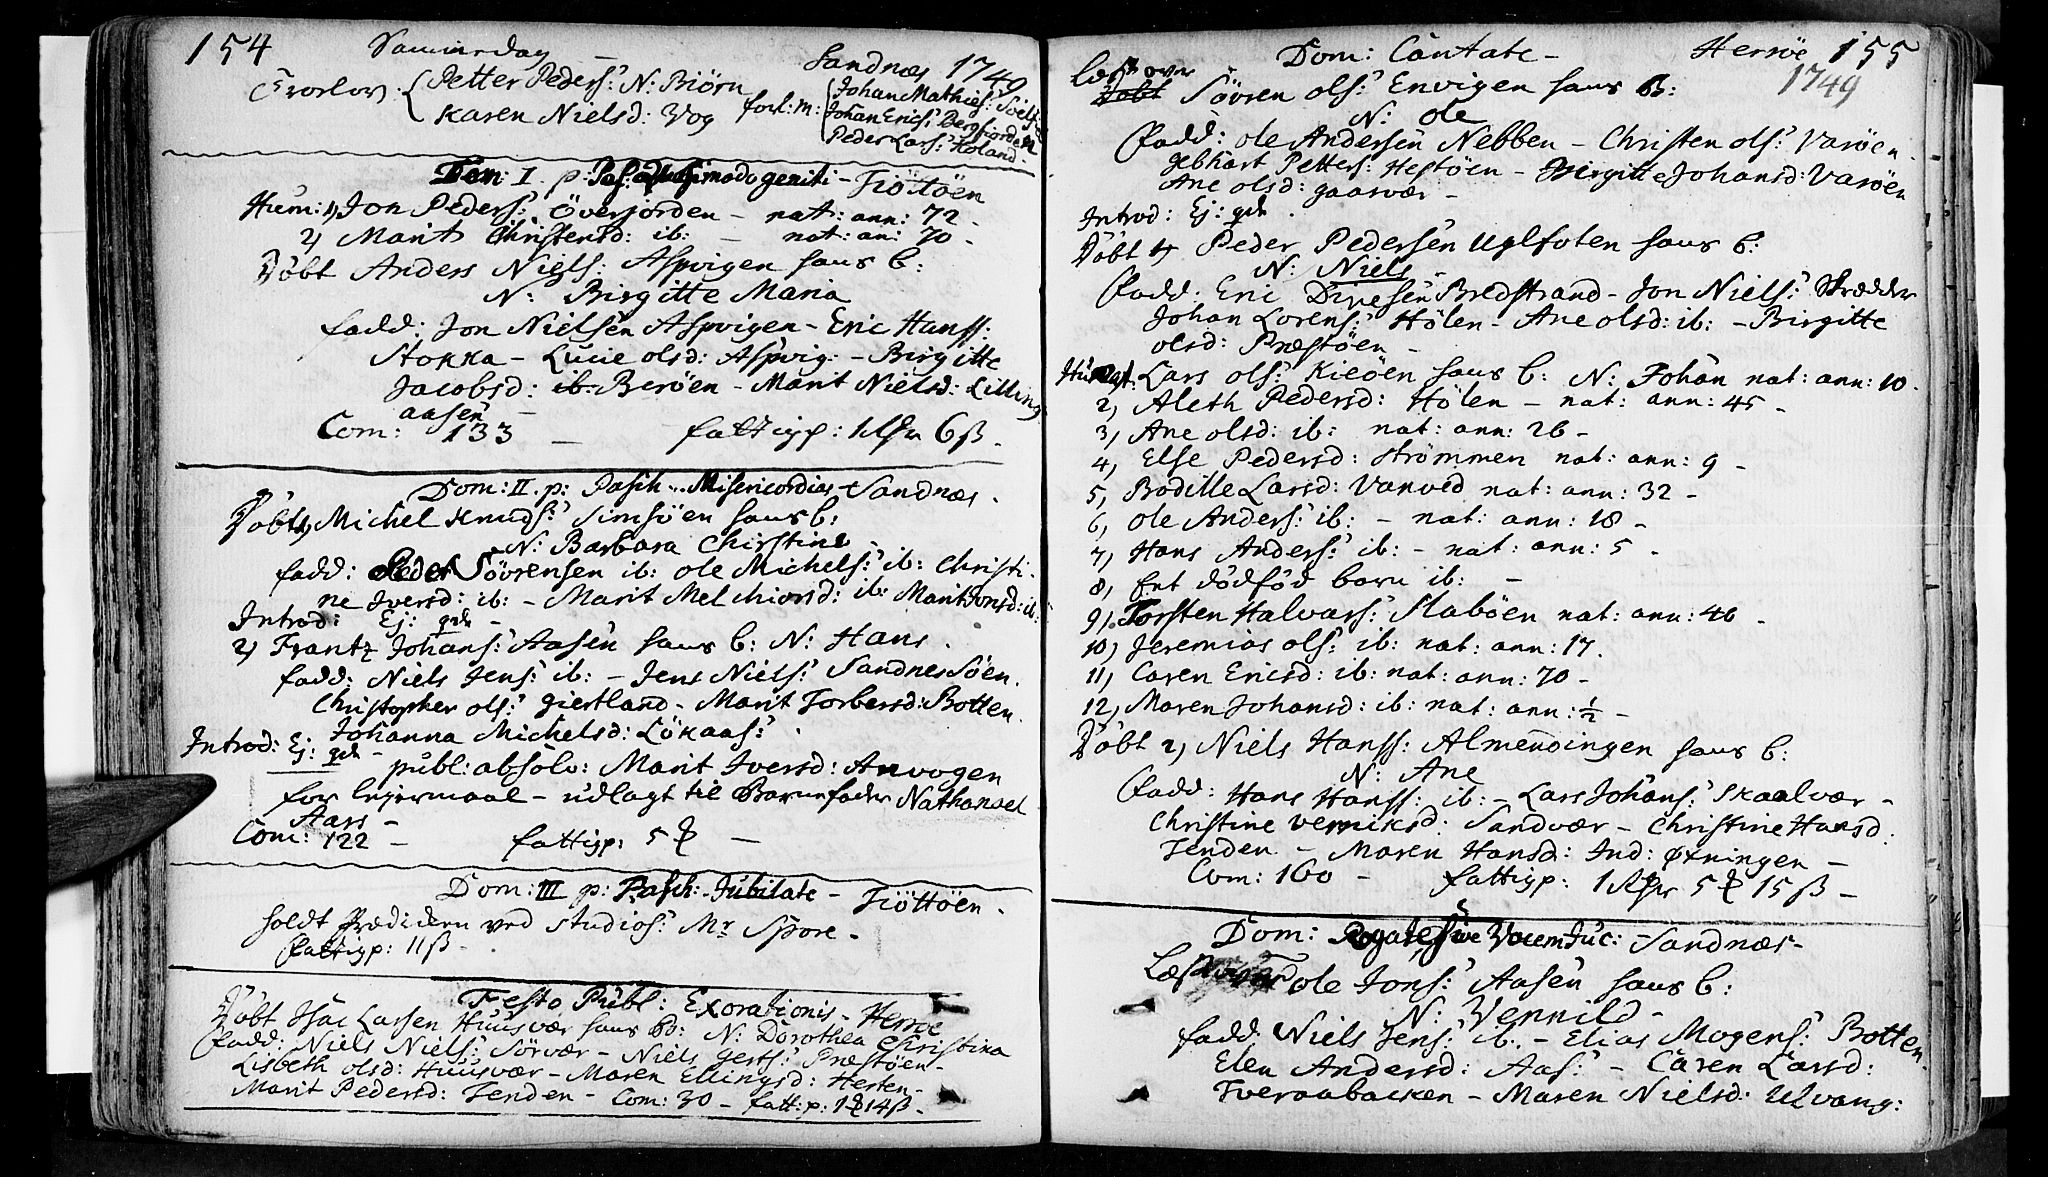 154 Samme dag Sandnæs 1749
Trolov. Petter Peders: N: Biörn
Karen Nielsd: Vog forl: M: Johan Mathies:
Johan Erics: Bergfiorden
Peder Lars: Holand
Dom: I. p: Pas: Quasimodogeniti - Tiöttöen
Hum: 1, Jon Peders: Överjorden - nat: ann: 72 -
2, Marit Christensd: ib: - nat: an: 70 -
Döbt Anders Niels: Aspvigen hans b:
N: Birgitte Maria
fadd: Jon Nielsen Aspvigen - Eric Hanss:
Stokka - Lucie olsd: Aspvig: - Birgitte
Jacobsd: ib. Beröen - Marit Nielsd: Lilling
aasen -
Com: 133 - fattigp: 6 ß -
Dom: II. p: Pasch: Misericordias - Sandnæs -
Döbt 1, Michel Knuds: Simsöen hans b:
N: Barbara Chirstine -
fadd: Peder Sövrensen ib: ole Michels: ib: Christi-
ne Iversd: ib: - Marit Melchiorsd: ib: Marit Jonsd: ib:
Introd: Ej: qdr -
2, Frantz Johans: Aasen hans b: N: Hans -
fadd: Niels Jens: ib: - Jens Niels: Sandnes Söen.
Christopher ols: Giertland - Marit Torbersd: Botten.
Johanna Michelsd: Lökaas: -
Introd: Ej: qdr -
publ: absolv: Marit Iversd: Anvogen
for lejermaal - udlagt til Barnefader Nathanael
Aars -
Com: 122 - fattigp: 5 -
Dom: III p: Pasch: Jubilate - Tiöttöen -
holdt Prædiken ved Studios: Mr Spore -
fattigp: 11 ß -
Festo Publ: Exorationis - Herröe
Döbt Isac Larsen Huusvær hans B: N: Dorothea Christina
fadd: Niels Niels: Sörvær - Niels Gerts: Præstöen -
Lisbeth olsd: Huusvær - Maren Ellingsd: Hesten -
Marit Pedersd: Tenden - Com: 30 - fatt: p: 14 ß -
Dom: Cantate - Herröe 155
1749
Læst over
Döbt Sövren ols: Envigen hans B:
N: ole
fadd: ole Andersen Nebben - Christen ols: Varöen -
Gebhart Petters: Hestöen - Birgitte Johansd: Varöen
Ane olsd: gaasvær -
Introd: Ej: qdr -
Döbt 1, Peder Pedersen Uglfoten hans b:
N: Niels
fadd: Eric Bredstrand - Jon Niels: Skrædder
Johan Lorens: Hölen - Ane olsd: ib: - Birgitte
olsd: Præstöen -
Lars ols: Kieöen hans b: N: Johan nat: ann: 10 -
2, Aleth Pedersd: Hölen - nat: ann: 45 -
3, Ane olsd: ib: nat: ann: 26 -
4, Else Pedersd: Strömmen nat: ann: 9 -
5, Bodille Larsd: Vanved nat: ann: 32 -
6, ole Anders: ib: - nat: ann: 18 -
7, Hans Anders: ib: - nat: ann: 5 -
8, Ent dödföd barn ib: -
9, Torsten Halvars: Slaböen nat: ann: 46 -
10, Jeremias ols: ib: nat: ann: 17.
11, Caren Ericsd: ib: nat: ann: 70 -
12, Maren Johansd: ib: nat: ann: ½ -
Döbt 2, Niels Hanss: Almenningen hans b:
N: Ane
fadd: Hans Hanss: ib: - Lars Johans: Skaalvær -
Christine Verniksd: Sandvær - Christine Hansd:
Tenden - Maren Hansd: Ind: Øxningen -
Com: 160 - fattigp: 1 5 15 ß -
Dom: Rogate sive Vocem Juc: - Sandnæs -
Læst over ole Jons: Aasen hans b:
N: Vennild -
fadd: Niels Jens: ib: - Elias Mogens: Botten.
Elen Andersd: Aas: - Caren Larsd:
Tveraabacken - Maren Nielsd: Ulvang: